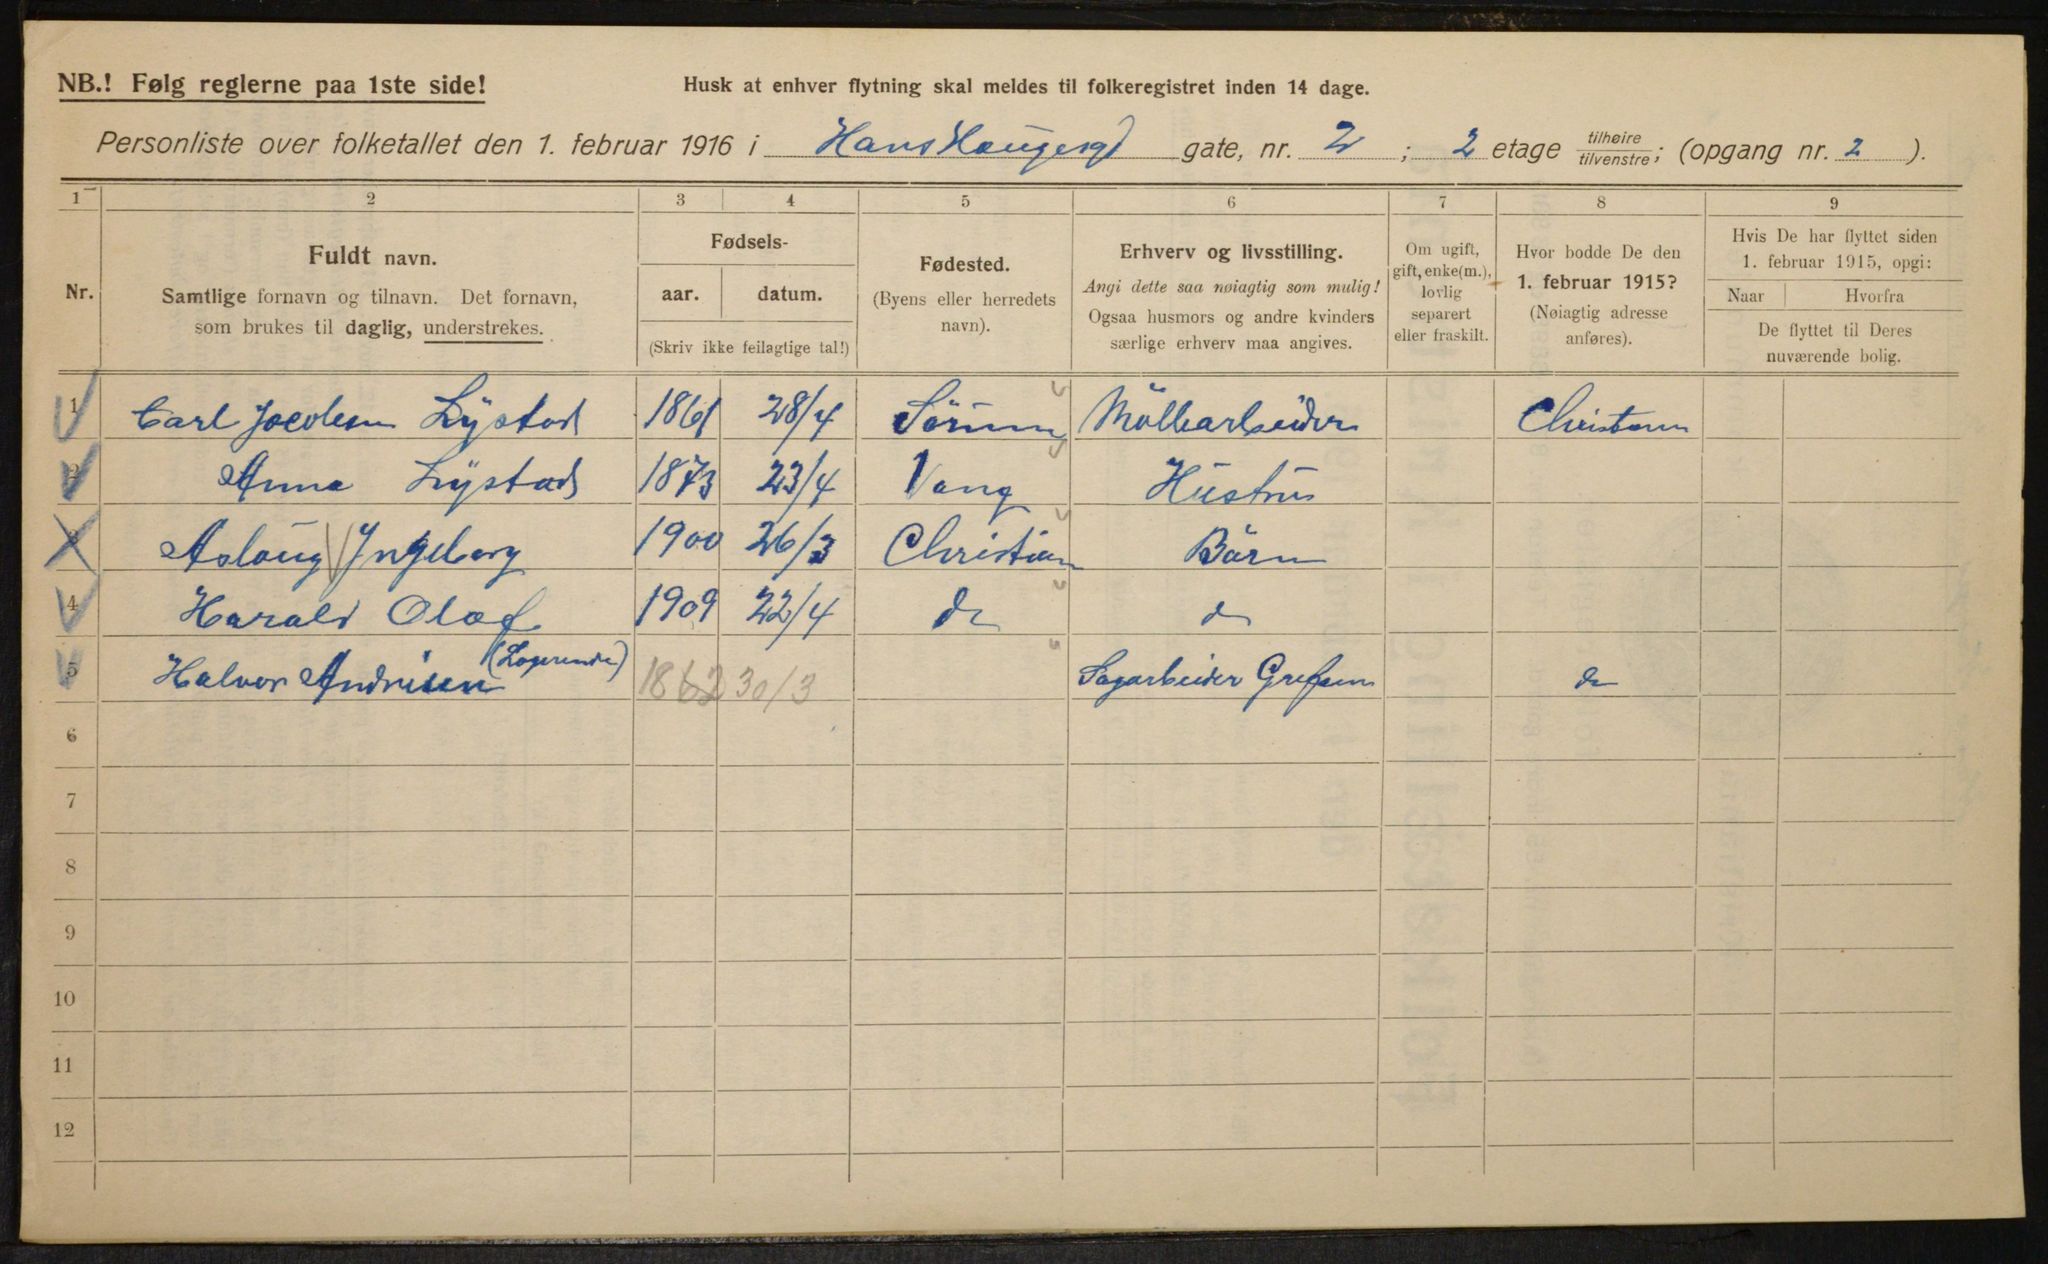 NB.! Følg reglerne paa 1ste side!
Husk at enhver flytning skal meldes til folkeregistret inden 14 dage.
Personliste over folketallet den 1. februar 1916 i Hans Haugesgd gate, nr. 2; 2 etage tilhøire/tilvenstre; (opgang nr. 2).
1 2 3 4 5 6 7 8 9
Nr.
Fuldt navn.
Samtlige fornavn og tilnavn. Det fornavn,
som brukes til daglig, understrekes.
Fødsels-
aar. datum.
(Skriv ikke feilagtige tal!)
Fødested.
(Byens eller herredets
navn).
Erhverv og livsstilling.
Angi dette saa nøiagtig som mulig!
Ogsaa husmors og andre kvinders
særlige erhverv maa angives.
Om ugift,
gift, enke(m.),
lovlig
separert
eller fraskilt.
Hvor bodde De den
1. februar 1915?
(Nøiagtig adresse
anføres).
Hvis De har flyttet siden
1. februar 1915, opgi:
Naar Hvorfra
De flyttet til Deres
nuværende bolig.
1 Carl Jacobsen Lÿstad 1861 28/4 Sörum Möllearbeider Christiania
2 Anna Lÿstad 1873 23/4 Vang Hustru
3 Aslaug Ingeborg 1900 26/3 Christian Börn
4 Harald Olaf 1909 22/4 do do
5 Halvor Andrisen (Logerende) 1862 30/3 Sagarbeider Grefsen do
6
7
8
9
10
11
12